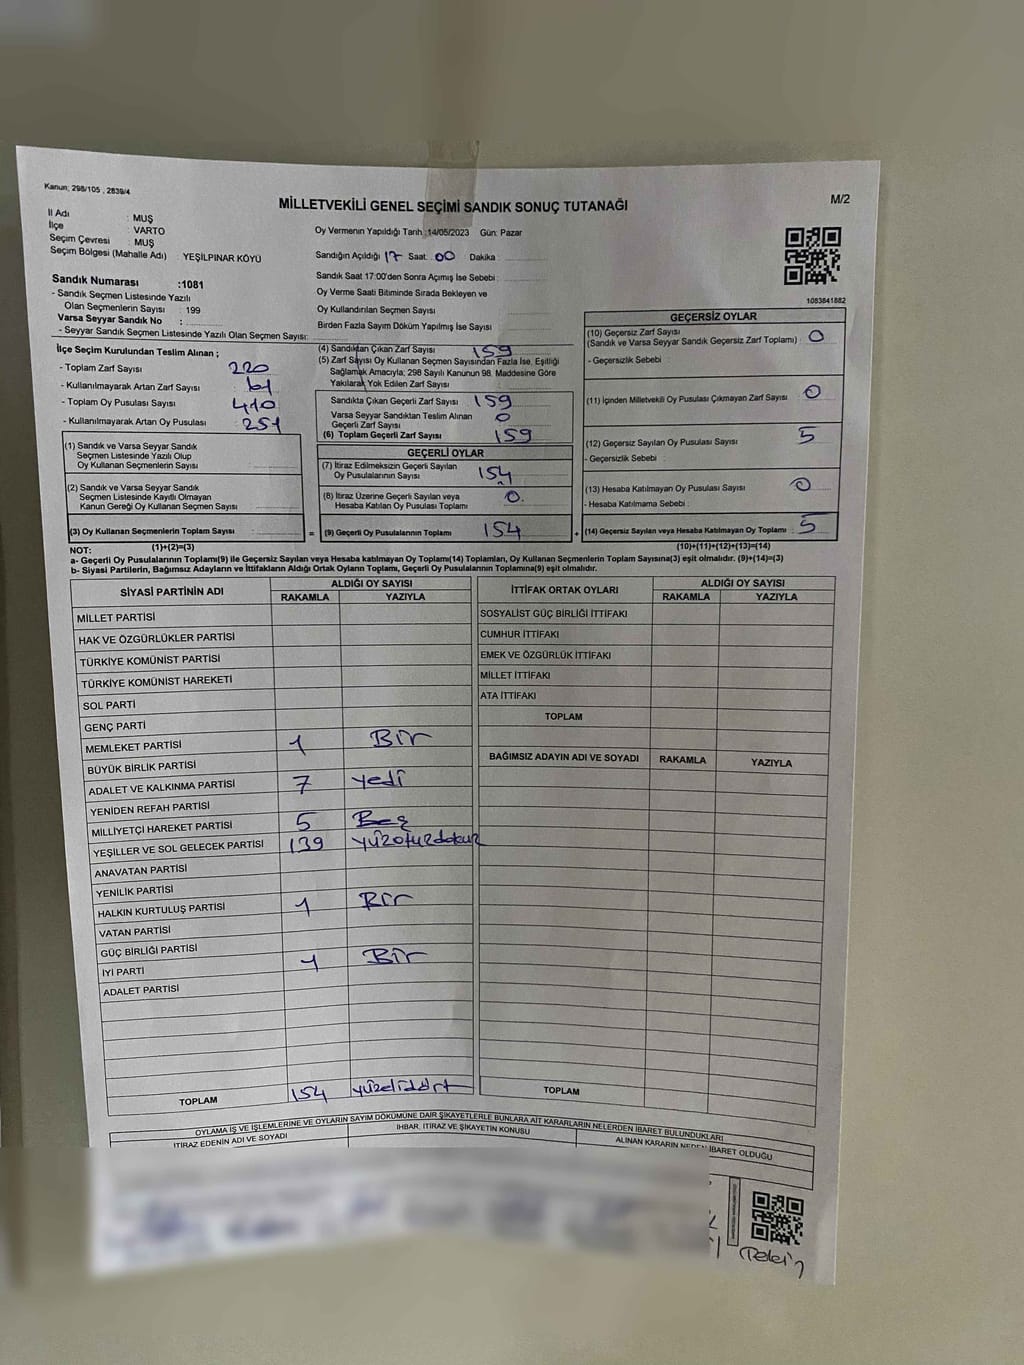 Kanun; 298/105 , 2839/4
MİLLETVEKİLİ GENEL SEÇİMİ SANDIK SONUÇ TUTANAĞI
M/2
İl Adı : MUŞ
İlçe : VARTO
Seçim Çevresi : MUŞ
Seçim Bölgesi (Mahalle Adı) : YEŞİLPINAR KÖYÜ
Sandık Numarası :1081
- Sandık Seçmen Listesinde Yazılı
Olan Seçmenlerin Sayısı : 199
Varsa Seyyar Sandık No :
- Seyyar Sandık Seçmen Listesinde Yazılı Olan Seçmen Sayısı:
Oy Vermenin Yapıldığı Tarih :14/05/2023 Gün: Pazar
Sandığın Açıldığı 17 Saat 00 Dakika :
Sandık Saat 17:00'den Sonra Açımış İse Sebebi :
Oy Verme Saati Bitiminde Sırada Bekleyen ve
Oy Kullandırılan Seçmen Sayısı
Birden Fazla Sayım Döküm Yapılmış İse Sayısı
1083841882
İlçe Seçim Kurulundan Teslim Alınan ;
- Toplam Zarf Sayısı : 220
- Kullanılmayarak Artan Zarf Sayısı : 61
- Toplam Oy Pusulası Sayısı : 410
- Kullanılmayarak Artan Oy Pusulası : 251
(1) Sandık ve Varsa Seyyar Sandık
Seçmen Listesinde Yazılı Olup
Oy Kullanan Seçmenlerin Sayısı
(2) Sandık ve Varsa Seyyar Sandık
Seçmen Listesinde Kayıtlı Olmayan
Kanun Gereği Oy Kullanan Seçmen Sayısı
(3) Oy Kullanan Seçmenlerin Toplam Sayısı
(1)+(2)=(3)
(4) Sandıktan Çıkan Zarf Sayısı 159
(5) Zarf Sayısı Oy Kullanan Seçmen Sayısından Fazla İse, Eşitliği
Sağlamak Amacıyla; 298 Sayılı Kanunun 98. Maddesine Göre
Yakılarak Yok Edilen Zarf Sayısı :
Sandıkta Çıkan Geçerli Zarf Sayısı : 159
Varsa Seyyar Sandıktan Teslim Alınan
Geçerli Zarf Sayısı : 0
(6) Toplam Geçerli Zarf Sayısı : 159
GEÇERLİ OYLAR
(7) İtiraz Edilmeksizin Geçerli Sayılan
Oy Pusulalarının Sayısı : 154
(8) İtiraz Üzerine Geçerli Sayılan veya
Hesaba Katılan Oy Pusulası Toplamı : 0
= (9) Geçerli Oy Pusulalarının Toplamı 154
GEÇERSİZ OYLAR
(10) Geçersiz Zarf Sayısı
(Sandık ve Varsa Seyyar Sandık Geçersiz Zarf Toplamı) : 0
- Geçersizlik Sebebi :
(11) İçinden Milletvekili Oy Pusulası Çıkmayan Zarf Sayısı : 0
(12) Geçersiz Sayılan Oy Pusulası Sayısı : 5
- Geçersizlik Sebebi :
(13) Hesaba Katılmayan Oy Pusulası Sayısı : 0
- Hesaba Katılmama Sebebi :
+ (14) Geçersiz Sayılan veya Hesaba Katılmayan Oy Toplamı : 5
(10)+(11)+(12)+(13)=(14)
NOT:
a- Geçerli Oy Pusulalarının Toplamı(9) ile Geçersiz Sayılan veya Hesaba katılmayan Oy Toplamı(14) Toplamları, Oy Kullanan Seçmenlerin Toplam Sayısına(3) eşit olmalıdır. (9)+(14)=(3)
b- Siyasi Partilerin, Bağımsız Adayların ve İttifakların Aldığı Ortak Oyların Toplamı, Geçerli Oy Pusulalarının Toplamına(9) eşit olmalıdır.
SİYASİ PARTİNİN ADI
ALDIĞI OY SAYISI
RAKAMLA YAZIYLA
MİLLET PARTİSİ
HAK VE ÖZGÜRLÜKLER PARTİSİ
TÜRKİYE KOMÜNİST PARTİSİ
TÜRKİYE KOMÜNİST HAREKETİ
SOL PARTİ
GENÇ PARTİ
MEMLEKET PARTİSİ 1 Bir
BÜYÜK BİRLİK PARTİSİ
ADALET VE KALKINMA PARTİSİ 7 yedi
YENİDEN REFAH PARTİSİ
MİLLİYETÇİ HAREKET PARTİSİ 5 Beş
YEŞİLLER VE SOL GELECEK PARTİSİ 139 yüzotuzdokuz
ANAVATAN PARTİSİ
YENİLİK PARTİSİ
HALKIN KURTULUŞ PARTİSİ 1 Bir
VATAN PARTİSİ
GÜÇ BİRLİĞİ PARTİSİ
İYİ PARTİ 1 Bir
ADALET PARTİSİ
TOPLAM 154 yüzellidört
İTTİFAK ORTAK OYLARI
ALDIĞI OY SAYISI
RAKAMLA YAZIYLA
SOSYALİST GÜÇ BİRLİĞİ İTTİFAKI
CUMHUR İTTİFAKI
EMEK VE ÖZGÜRLÜK İTTİFAKI
MİLLET İTTİFAKI
ATA İTTİFAKI
TOPLAM
BAĞIMSIZ ADAYIN ADI VE SOYADI RAKAMLA YAZIYLA
TOPLAM
OYLAMA İŞ VE İŞLEMLERİNE VE OYLARIN SAYIM DÖKÜMÜNE DAİR ŞİKAYETLERLE BUNLARA AİT KARARLARIN NELERDEN İBARET BULUNDUKLARI
İTİRAZ EDENİN ADI VE SOYADI
İHBAR, İTİRAZ VE ŞİKAYETİN KONUSU
ALINAN KARARIN NEDEN İBARET OLDUĞU